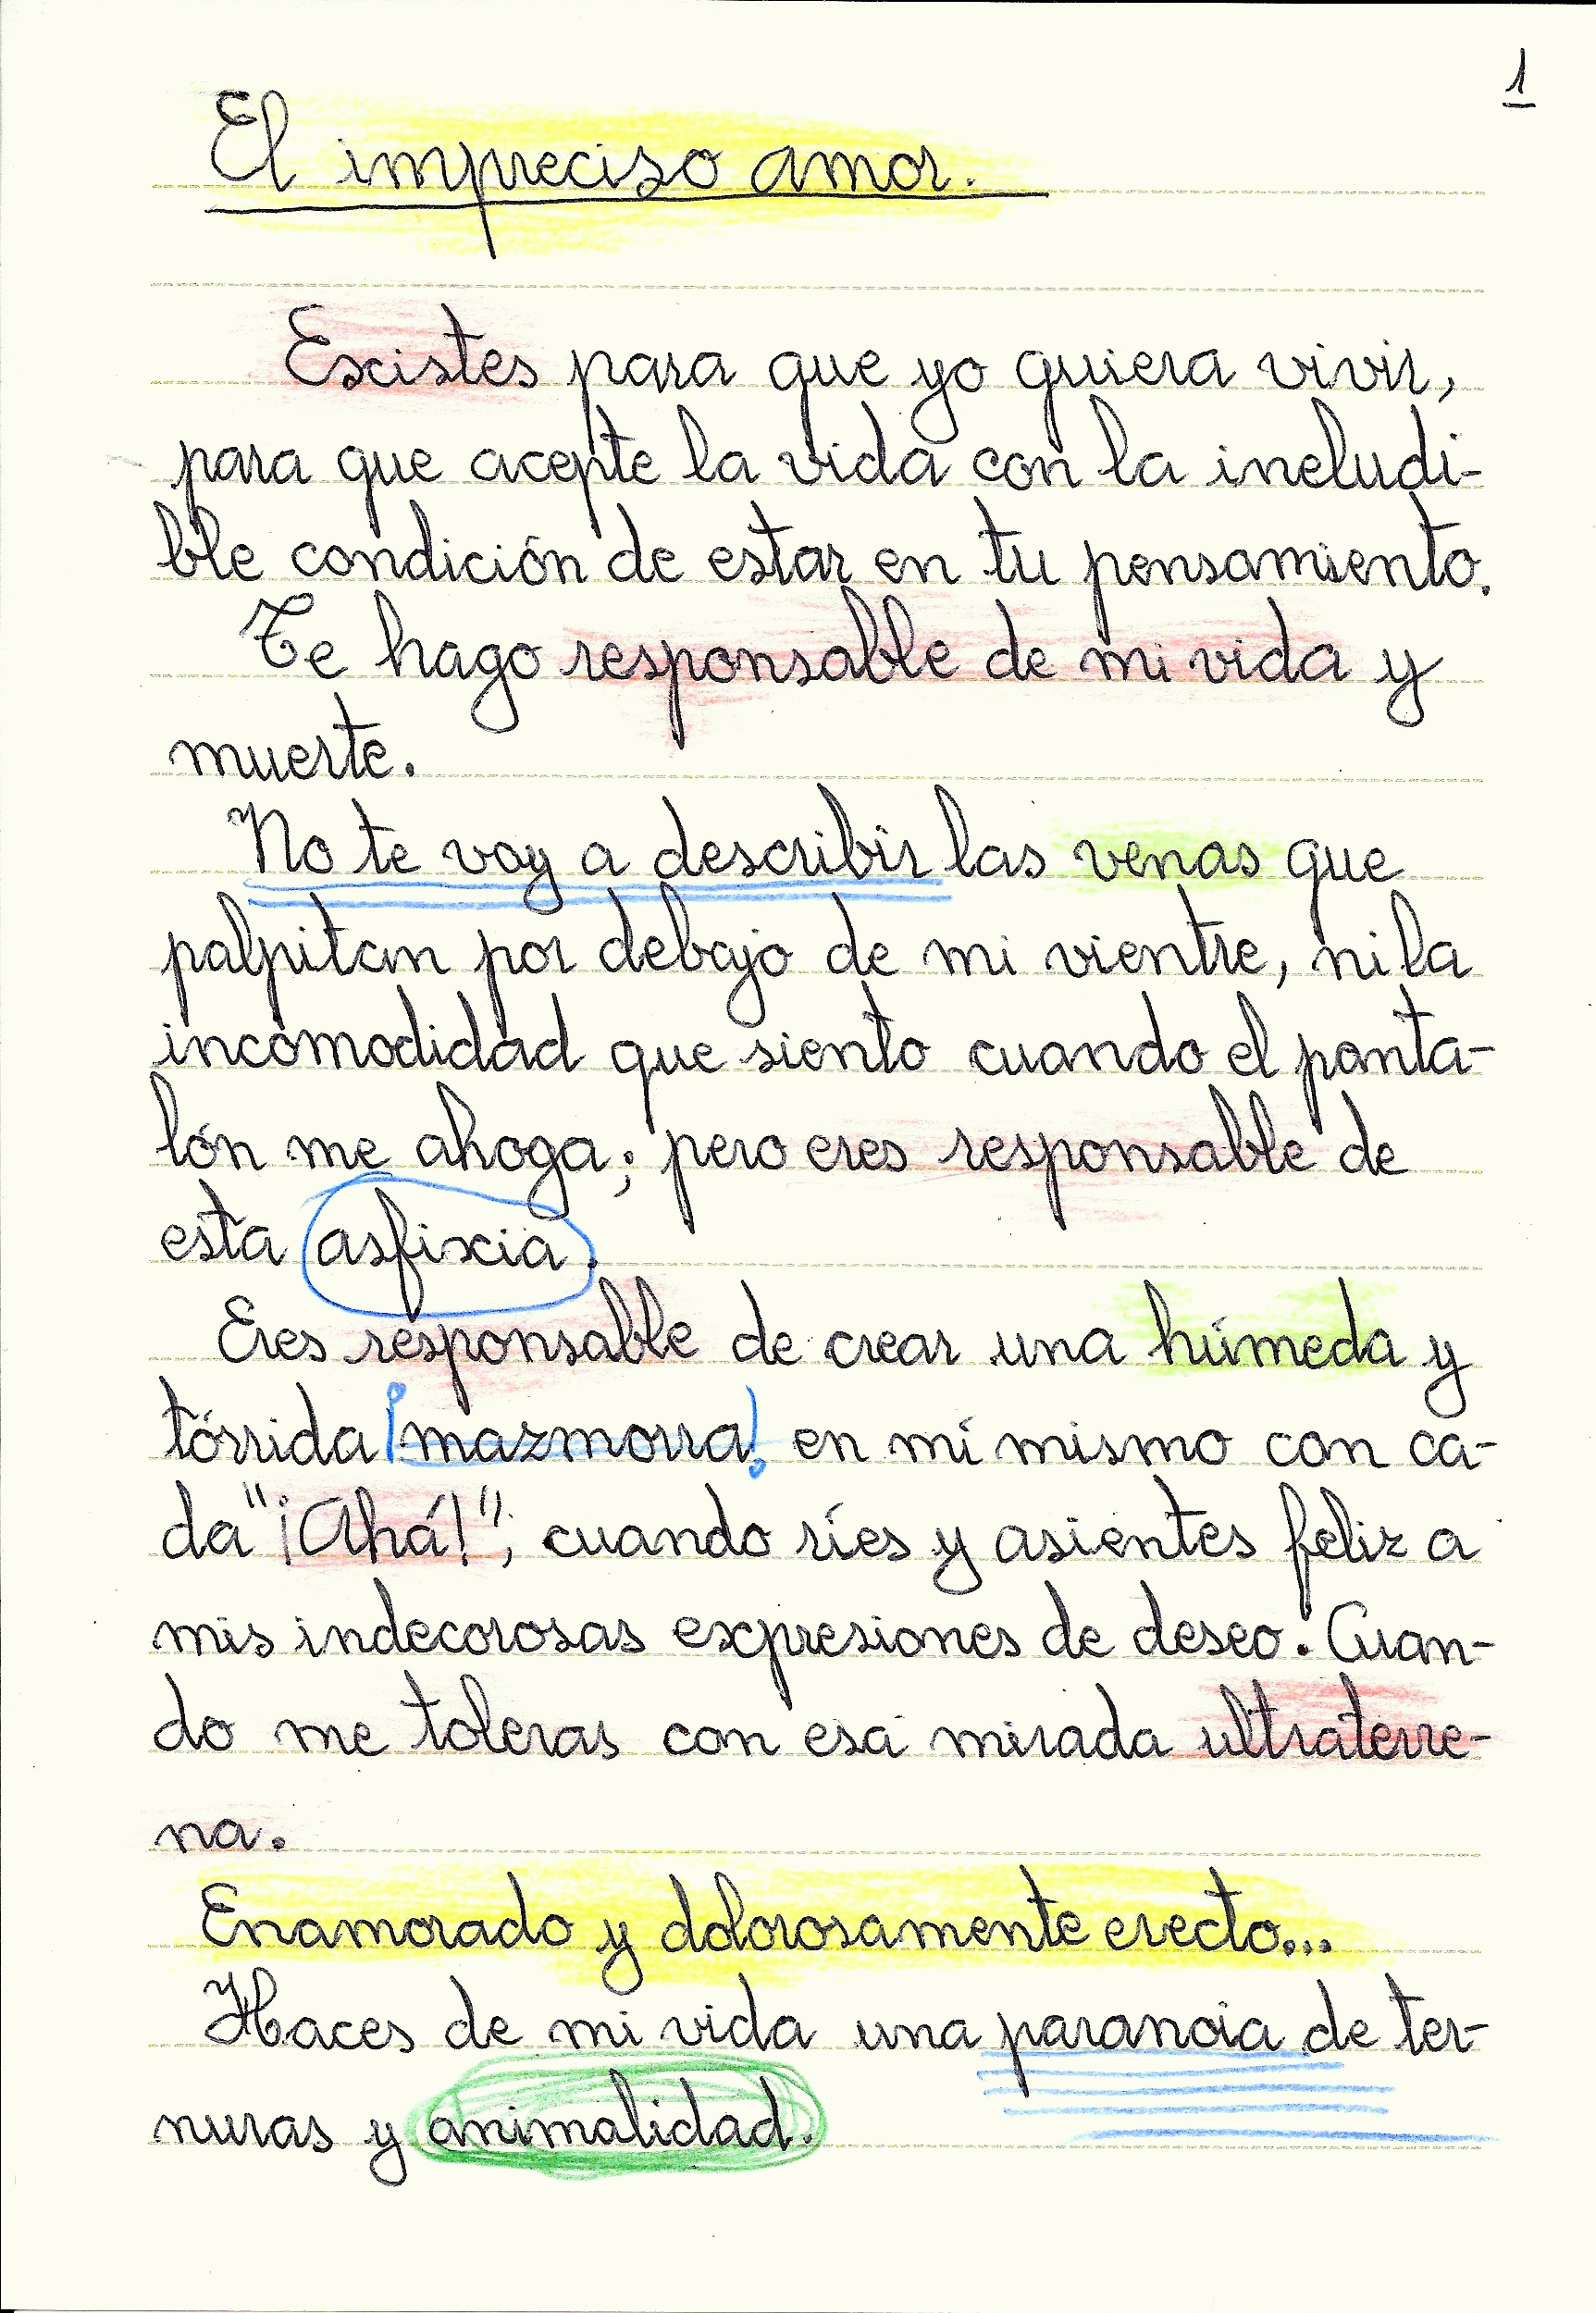 1
El impreciso amor.
Existes para que yo quiera vivir,
para que acepte la vida con la ineludi-
ble condición de estar en tu pensamiento.
Te hago responsable de mi vida y
muerte.
No te voy a describir las venas que
palpitan por debajo de mi vientre, ni la
incomodidad que siento cuando el panta-
lón me ahoga; pero eres responsable de
esta asfixia.
Eres responsable de crear una húmeda y
tórrida ¡mazmorra! en mí mismo con ca-
da "¡Ahá!", cuando ríes y asientes feliz a
mis indecorosas expresiones de deseo. Cuan-
do me toleras con esa mirada ultraterre-
na.
Enamorado y dolorosamente erecto...
Haces de mi vida una paranoia de ter-
nuras y animalidad.